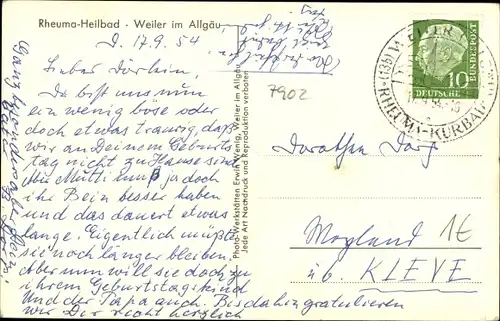 Rheuma-Heilbad · Weiler im Allgäu
D. 17.9.54
Lieber Dörlein,
Du bist uns nun
ein wenig böse oder
doch etwas traurig, daß
wir an Deinem Geburts
tag nicht zu Hause sind
Die Mutti muß ja doch
ihr Bein besser haben
und das dauert etwas
lange. Eigentlich müßte
sie noch länger bleiben,
aber nun will sie doch zu
ihrem Geburtstagskind
und der Papa auch. Bis dahin gratulieren
wir Dir recht herzlich
Photo-Werkstätten Erwin Wenig, Weiler im Allgäu
Jede Art Nachdruck und Reproduktion verboten
7902
DEUTSCHE BUNDESPOST
10
WEILER
(13b)
RHEUMA-KURBAD
Dorothea
Moyland
üb. KLEVE
1€